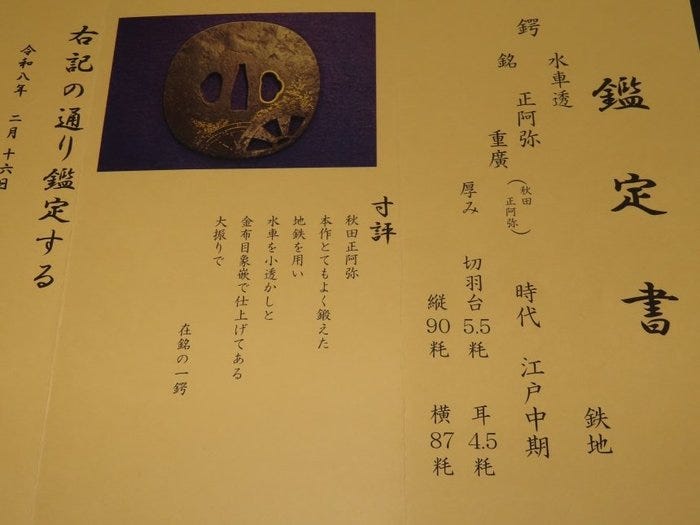 鑑定書
鉄地
水車透
鍔
銘 正阿弥 重廣 (秋田 正阿弥)
時代 江戸中期
厚み 切羽台5.5粍 耳4.5粍
縦90粍 横87粍
寸評
秋田正阿弥
本作とてもよく鍛えた
地鉄を用い
水車を小透かしと
金布目象嵌で仕上げてある
大振りで
在銘の一鍔
右記の通り鑑定する
令和八年 二月 十六日